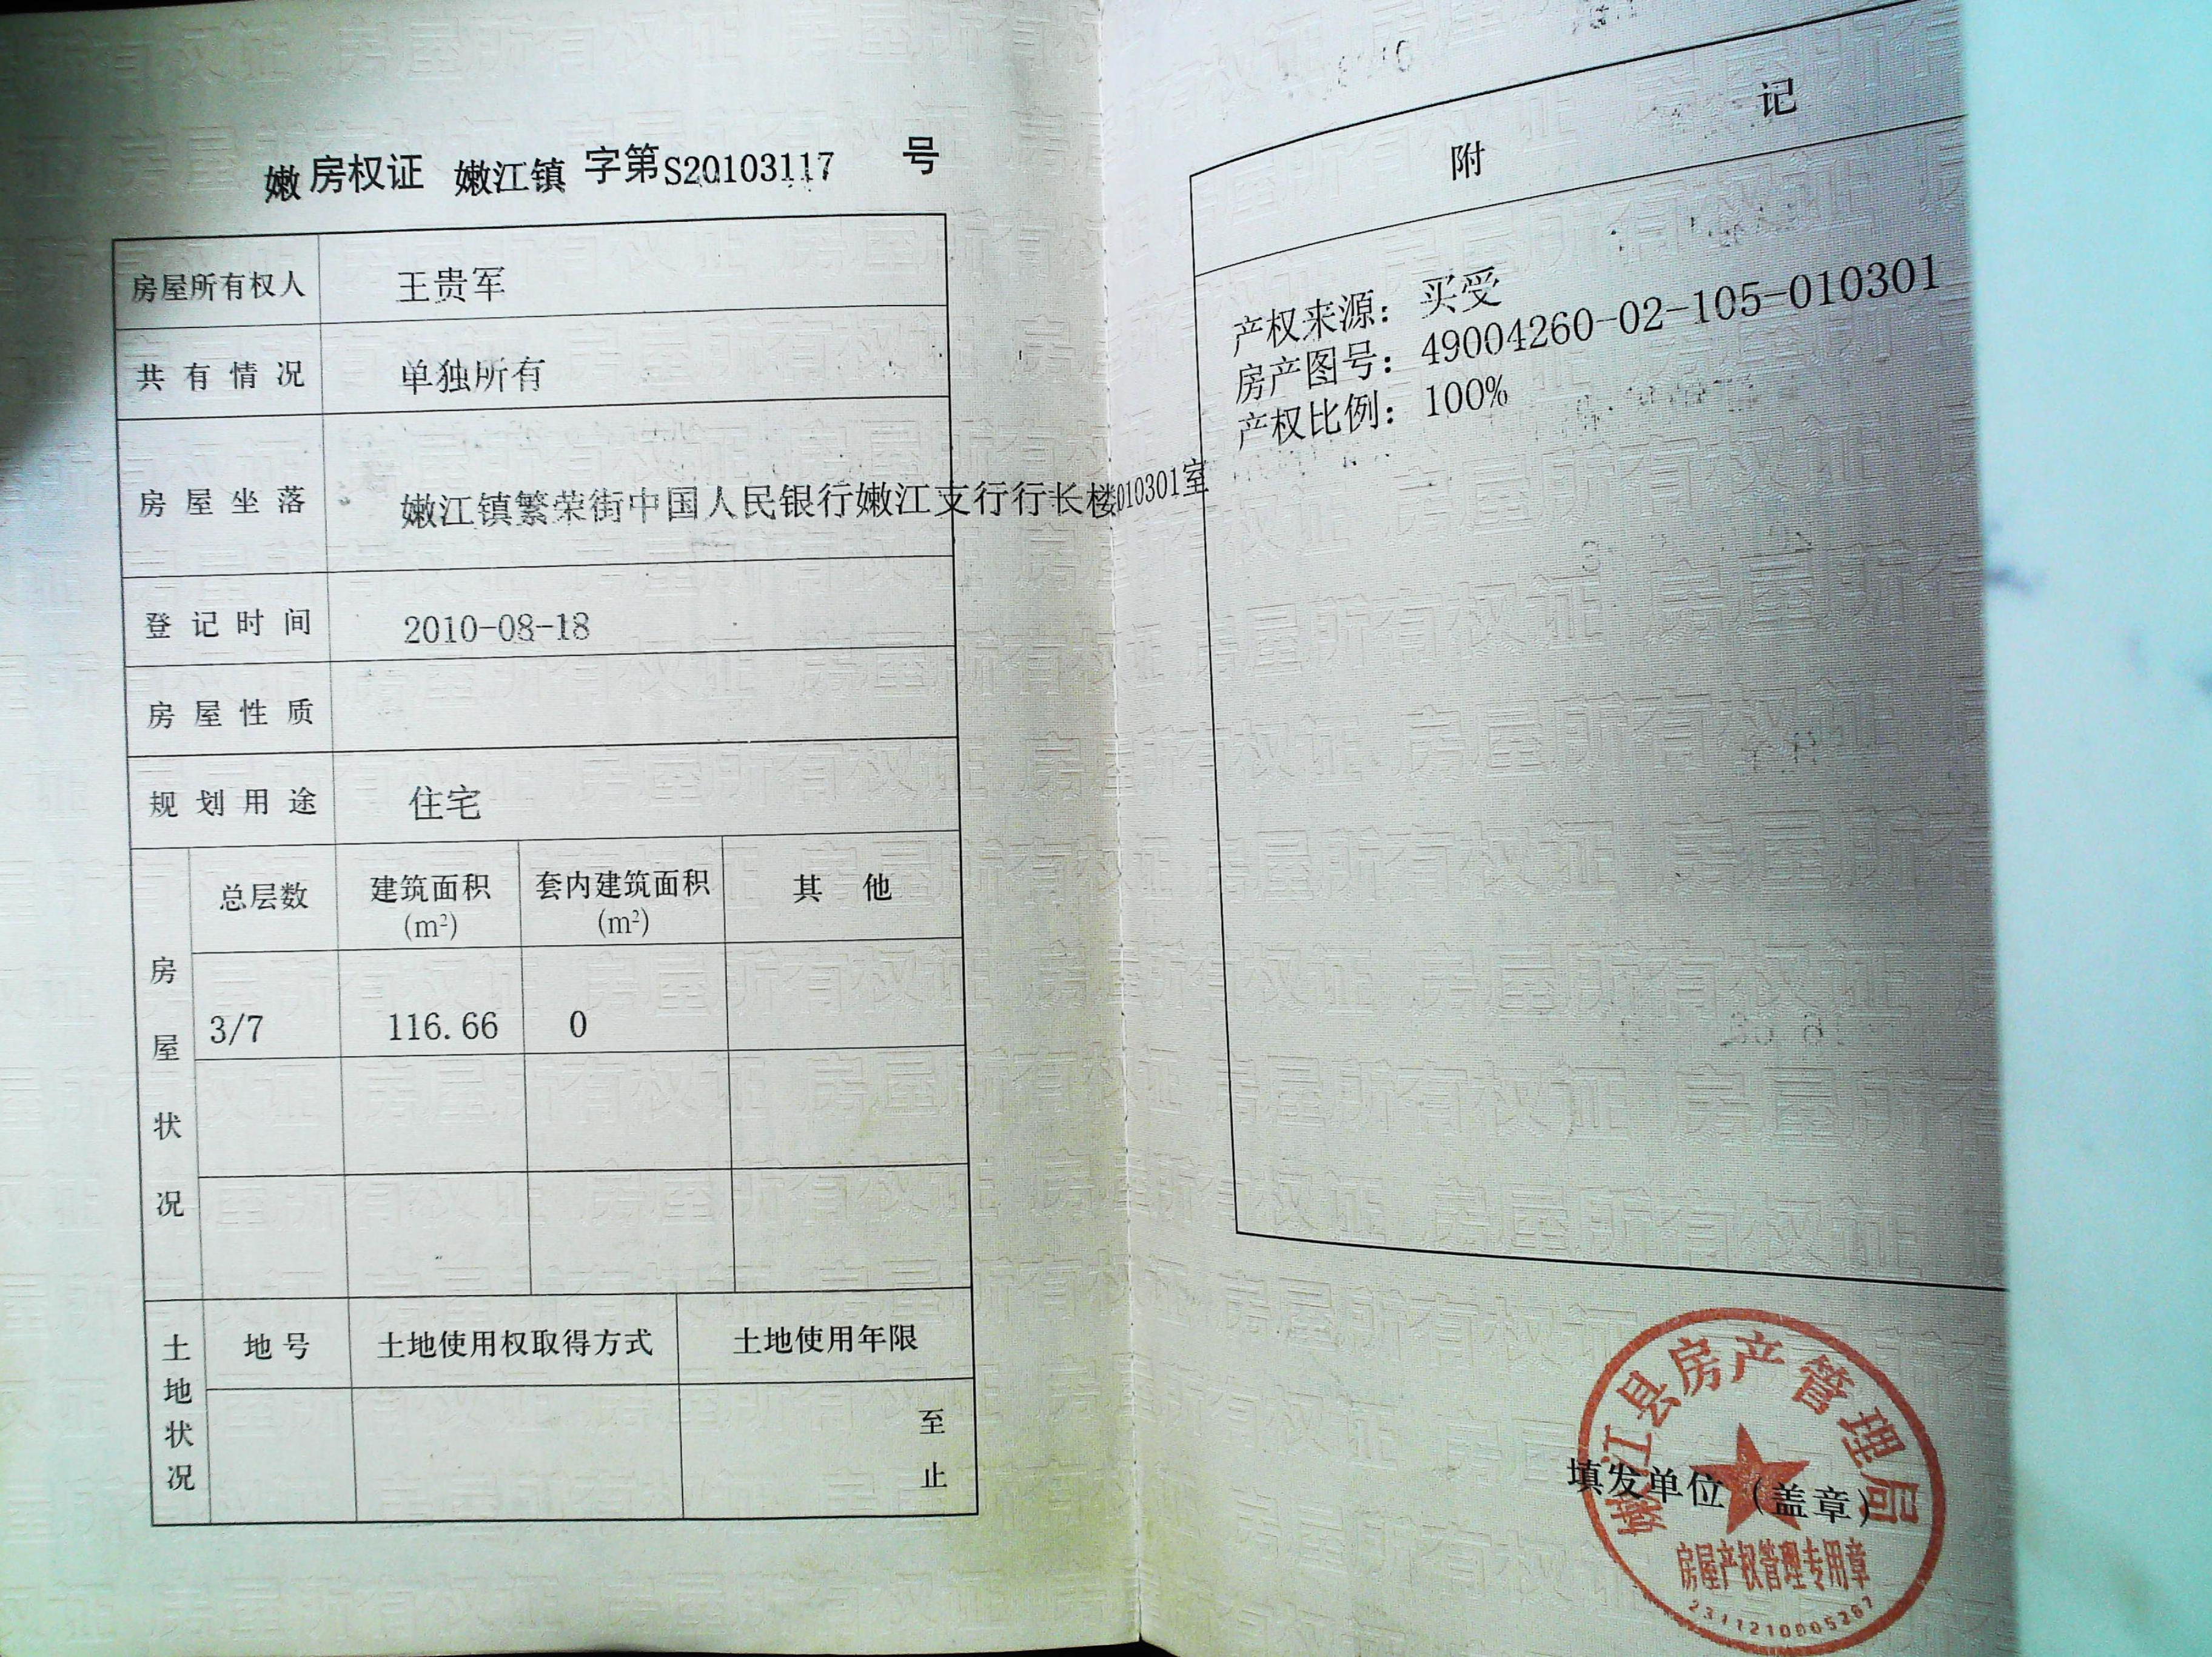 嫩房权证 嫩江镇 字第S20103117 号
房屋所有权人 王贵军
共有情况 单独所有
房屋坐落 嫩江镇繁荣街中国人民银行嫩江支行行长楼010301室
登记时间 2010-08-18
房屋性质
规划用途 住宅
房屋状况
总层数 建筑面积(m²) 套内建筑面积(m²) 其他
3/7 116.66 0
土地状况
地号 土地使用权取得方式 土地使用年限
至
止
附 记
产权来源：买受
房产图号：49004260-02-105-010301
产权比例：100%
嫩江县房产管理局
填发单位（盖章）
房屋产权管理专用章
2311210005267